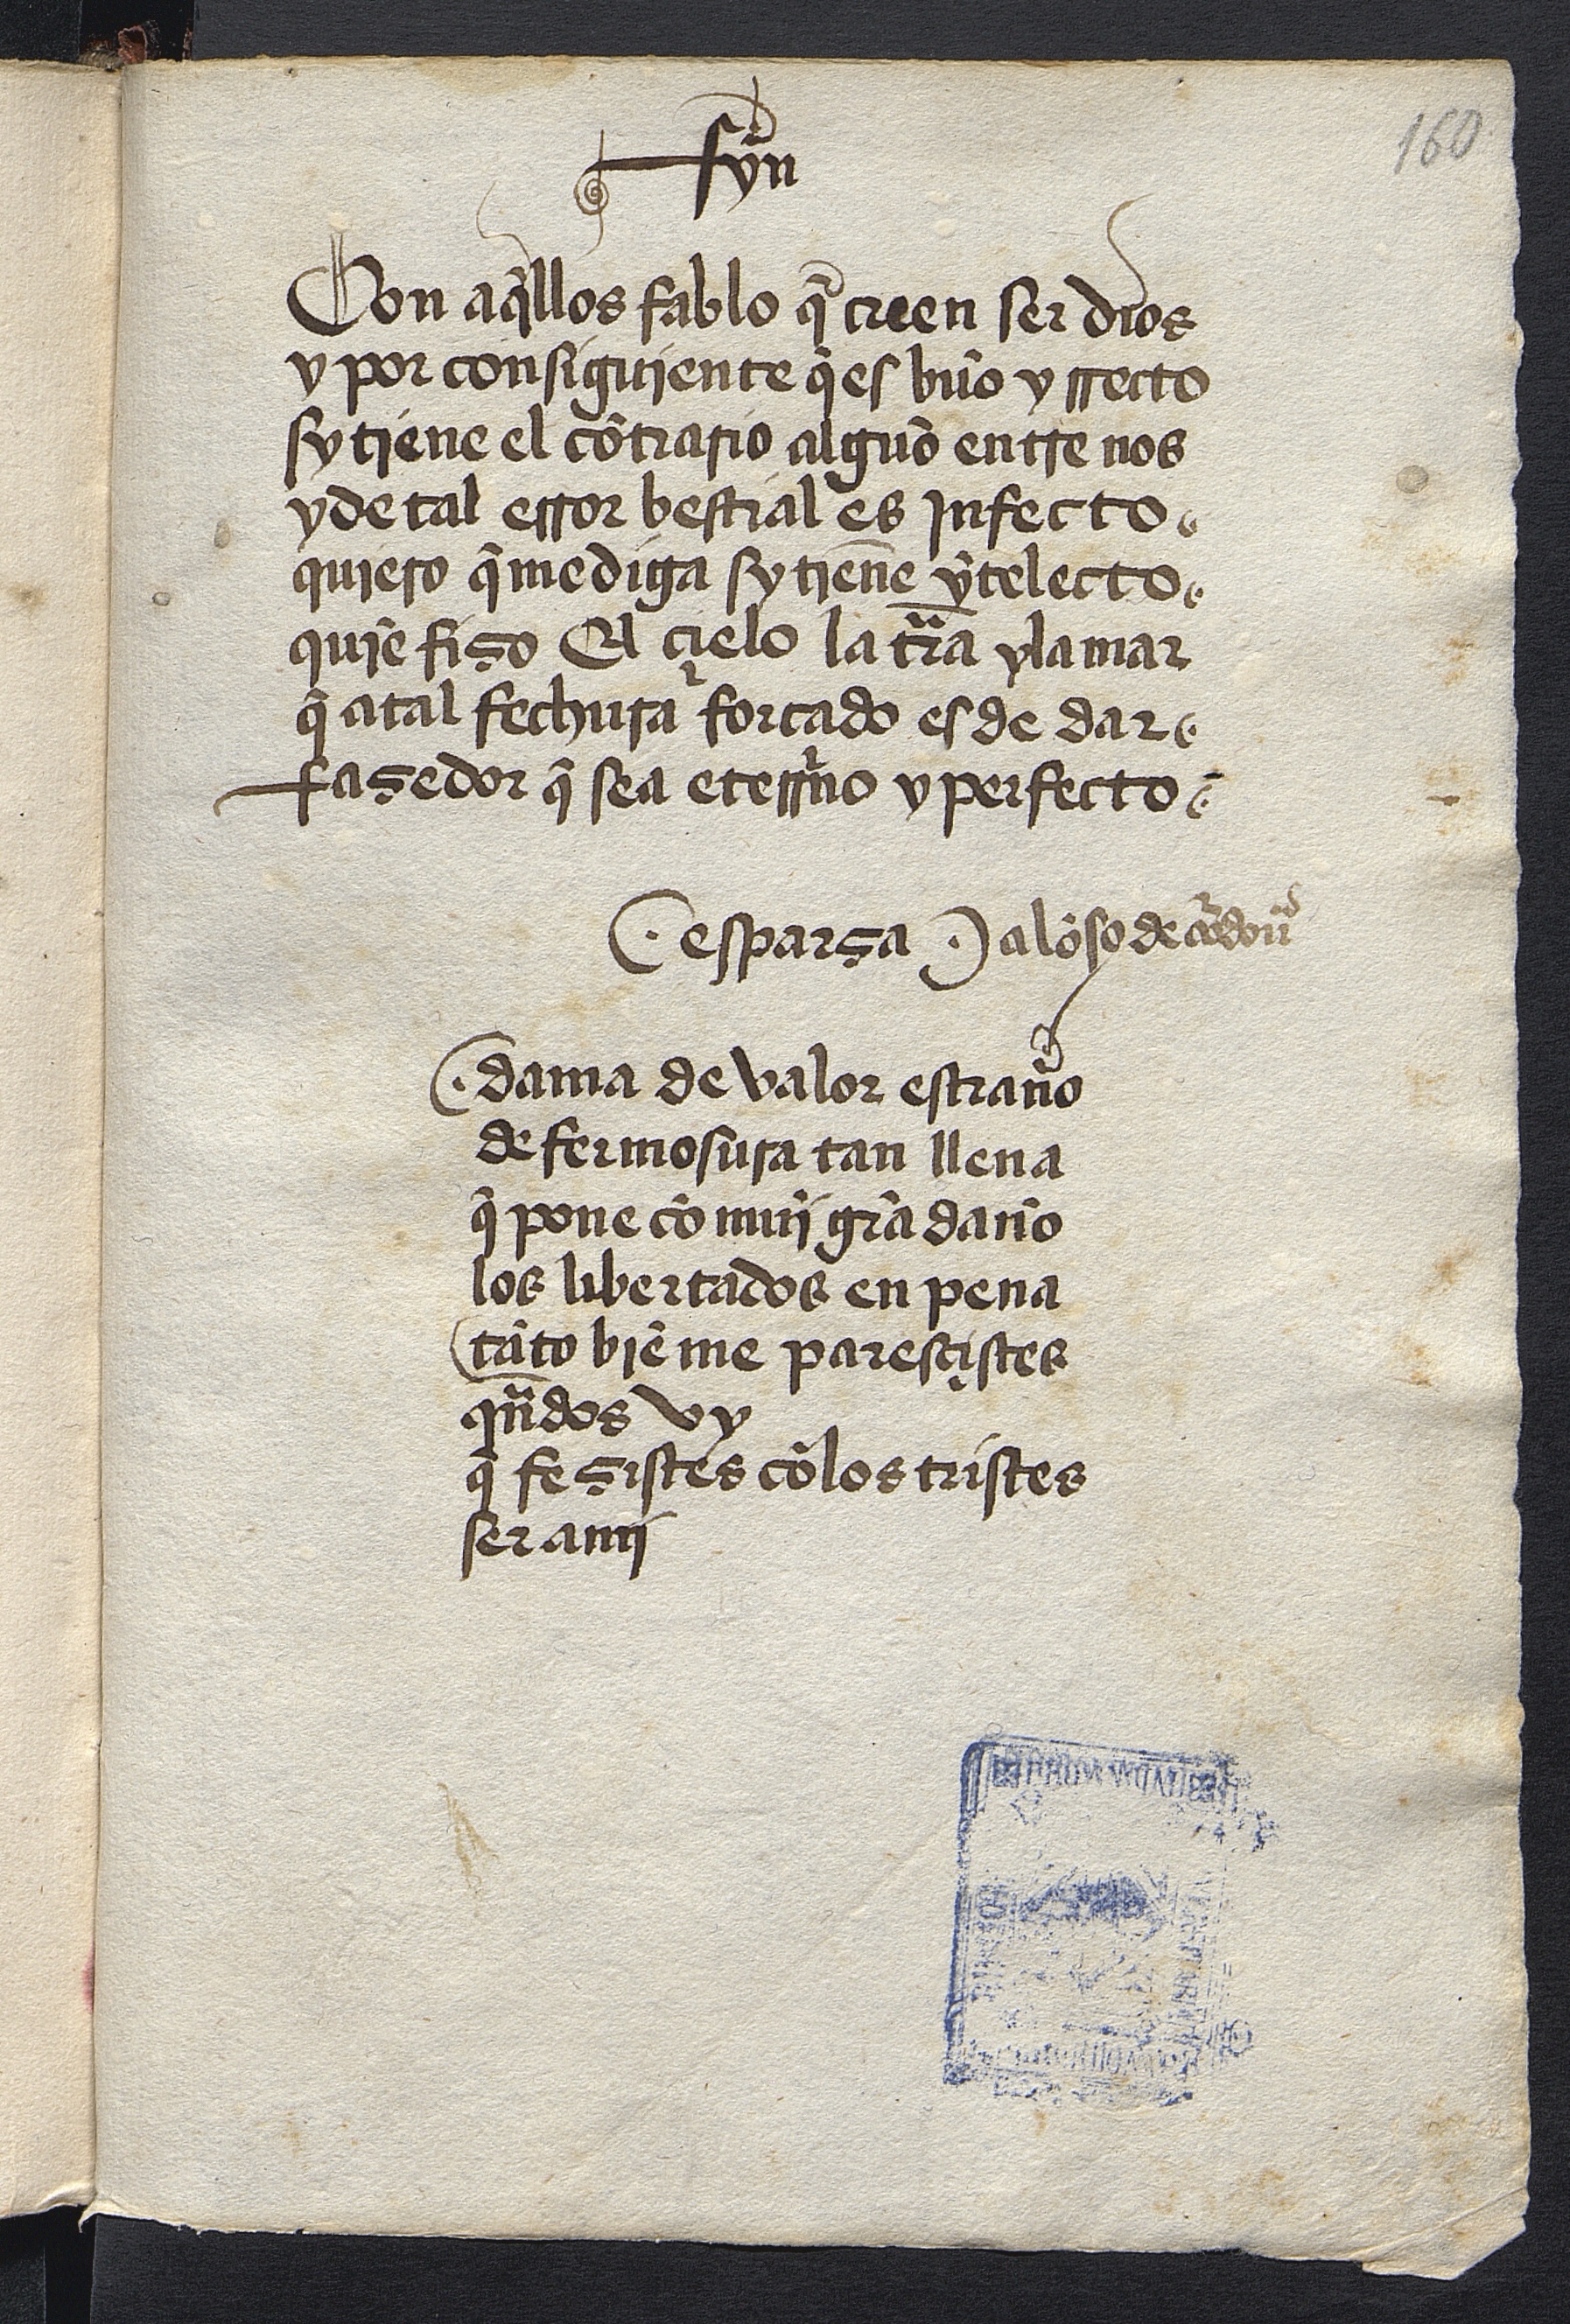 160
fyn
Con aq̃llos fablo q̃ creen ser dios
y por consiguiente q̃ es buẽo y rrecto
sy tiene el cõtrario alguõ entre nos
y de tal error bestial es jnfecto
quiero q̃ me diga sy tiene ỹtelecto
quiẽ fiço El cielo la trr̃a y la mar
q̃ a tal fechura forcado es de dar
façedor q̃ sea eterrno y perfecto
esparça alõso de cordou
dama de valor estraño
de fermosura tan llena
q̃ pone cõ muj grã daño
los libertados en pena
tãto biẽ me paresçistes
qñdos vy
q̃ feçistes cõ los tristes
ser a mj